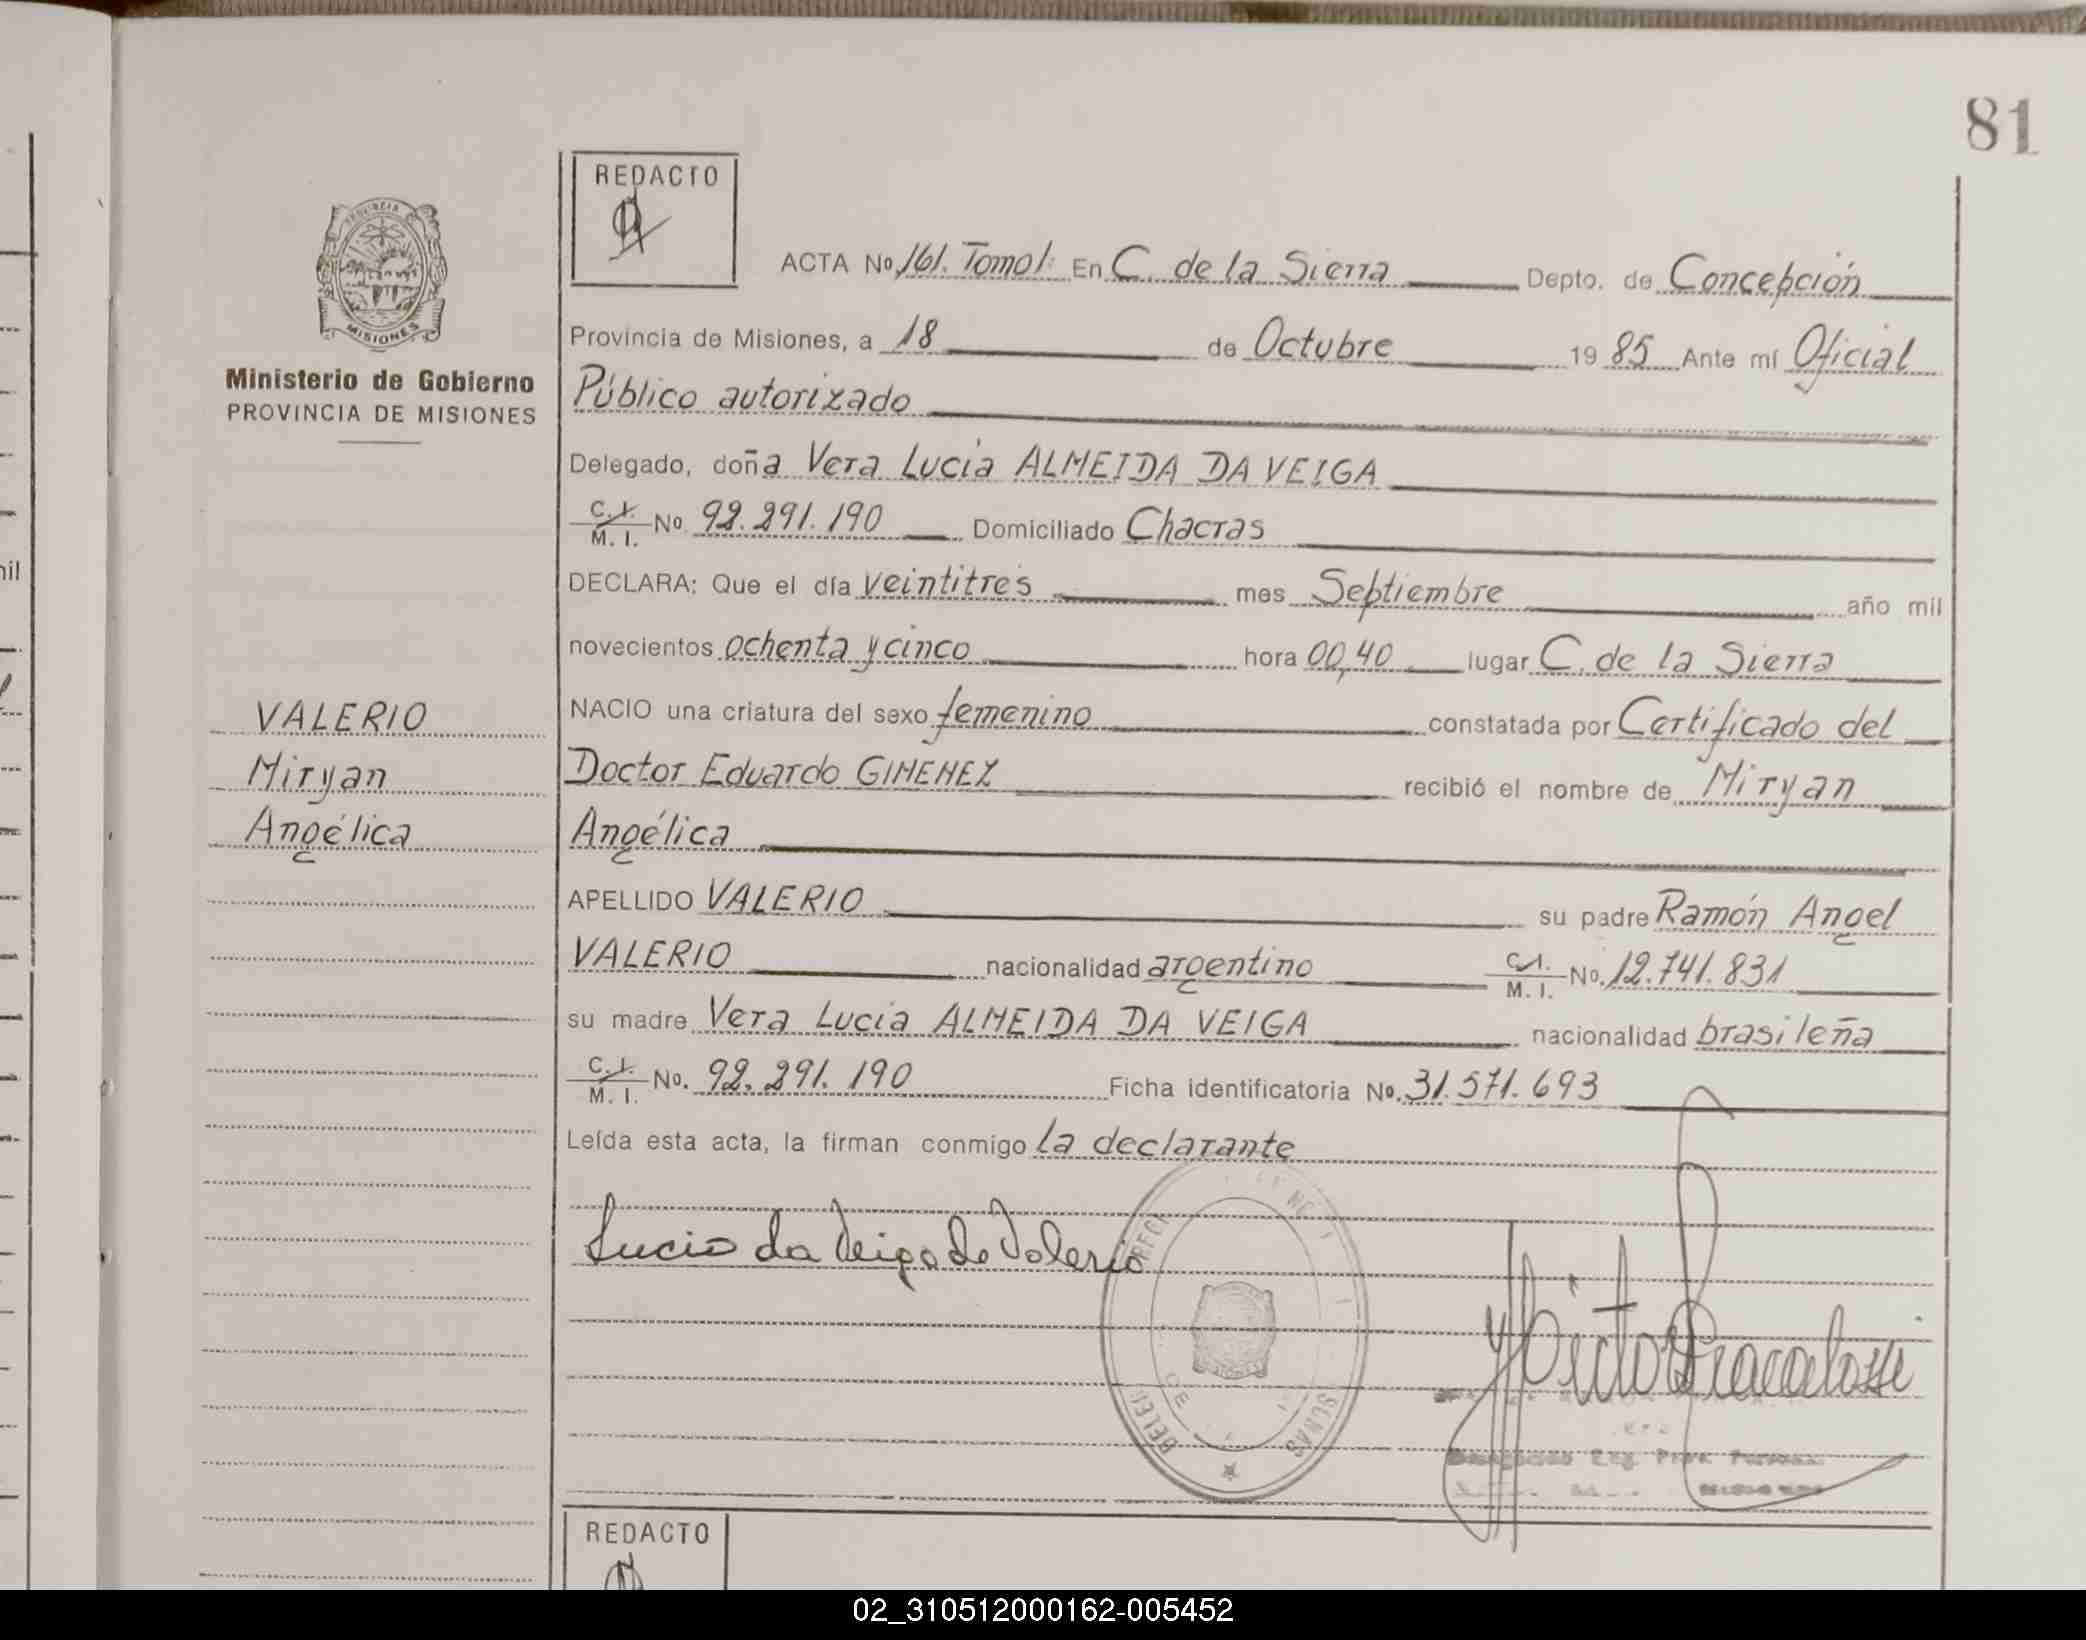 81
REDACTO
PROVINCIA
MISIONES
Ministerio de Gobierno
PROVINCIA DE MISIONES
ACTA No 161. Tomo 1 En C. de la Sierra Depto. de Concepción
Provincia de Misiones, a 18 de Octubre 19 85 Ante mí Oficial
Público autorizado
Delegado, doña Vera Lucia ALMEIDA DA VEIGA
C. I. M. I. No. 92.291.190 Domiciliado Chacras
DECLARA: Que el día veintitres mes Septiembre año mil
novecientos ochenta y cinco hora 00,40 lugar C. de la Sierra
NACIO una criatura del sexo femenino constatada por Certificado del
Doctor Eduardo GIMENEZ recibió el nombre de Miryan
Angélica
APELLIDO VALERIO su padre Ramón Angel
VALERIO nacionalidad argentino C.I. M. I. No. 12.741.831
su madre Vera Lucia ALMEIDA DA VEIGA nacionalidad brasileña
C. I. M. I. No. 92.291.190 Ficha identificatoria No. 31.571.693
Leída esta acta, la firman conmigo la declarante
VALERIO
Miryan
Angélica
Lucia da Veiga de Valerio
REDACTO
02_310512000162-005452